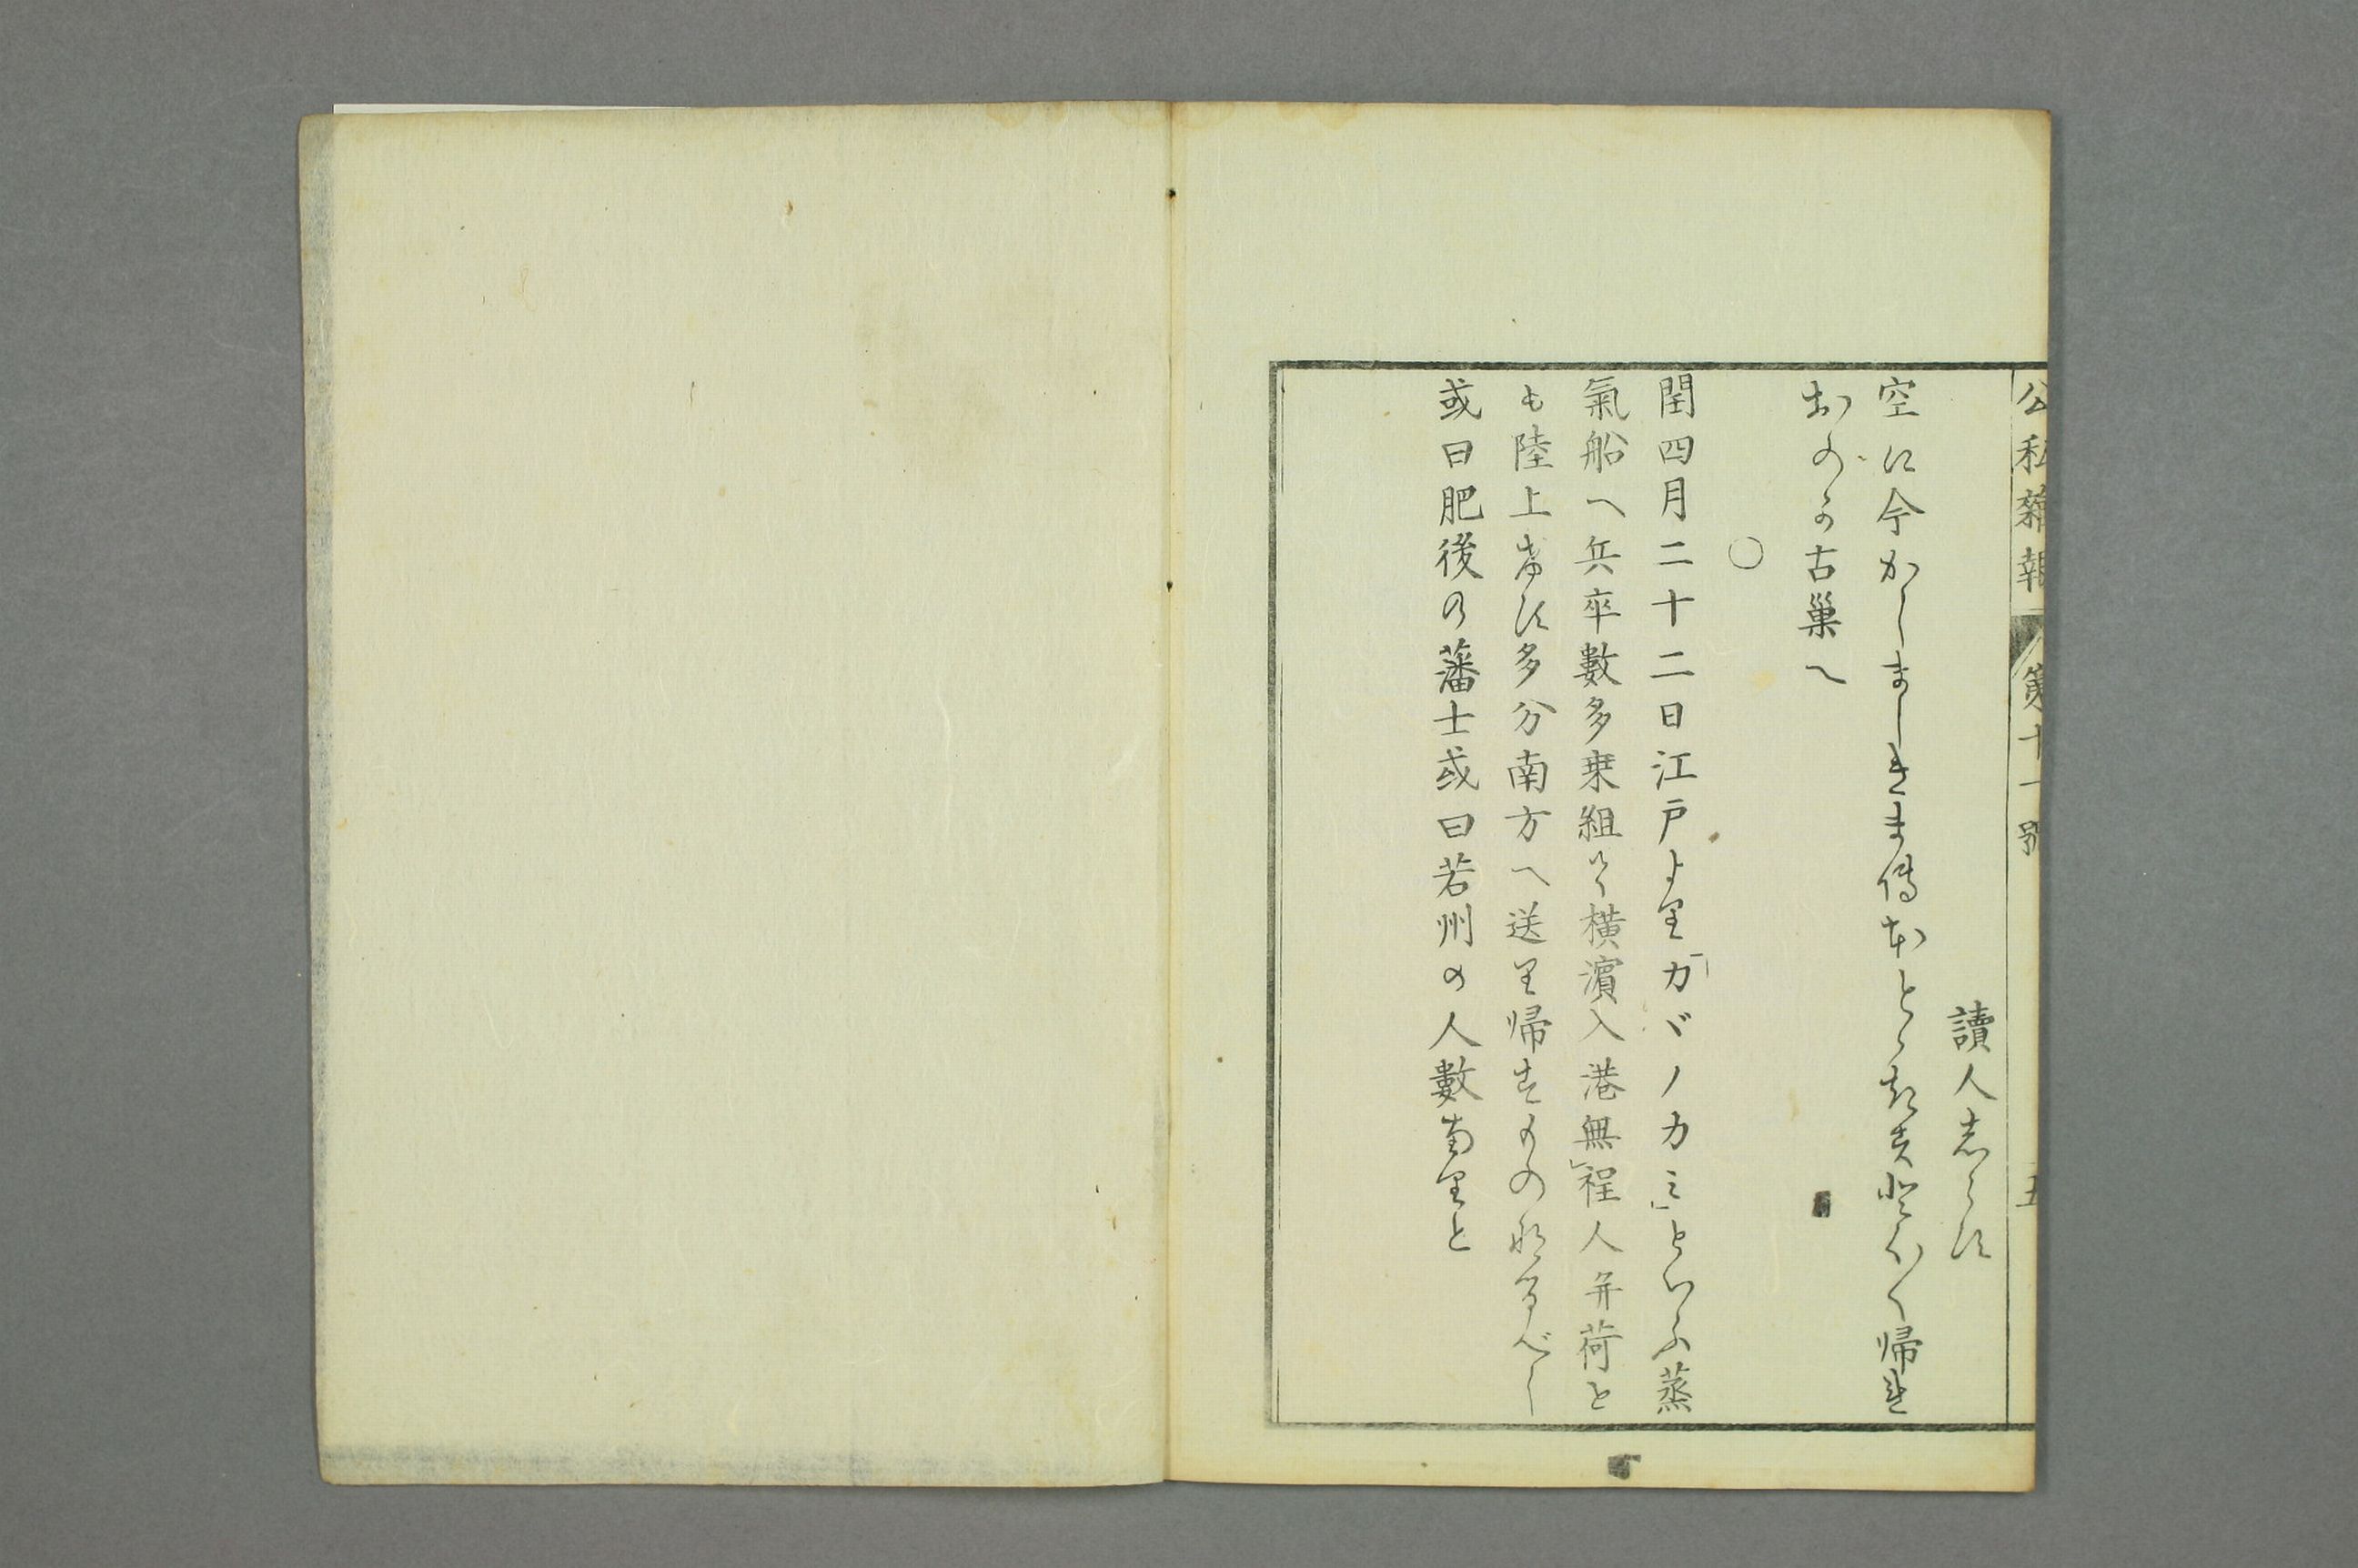 公私雑報 第十一號 五
讀人志らす
空に今かしましきまて傳ふとゝきす
おのか古巣へ
○
閏四月二十二日江戸より「カヾノカミ」といふ蒸
氣船へ兵卒數多乗組にて横濱入港無程人并荷と
も陸上せす多分南方へ送り帰すもの なるべし
或曰肥後の藩士或曰若州の人數なりと